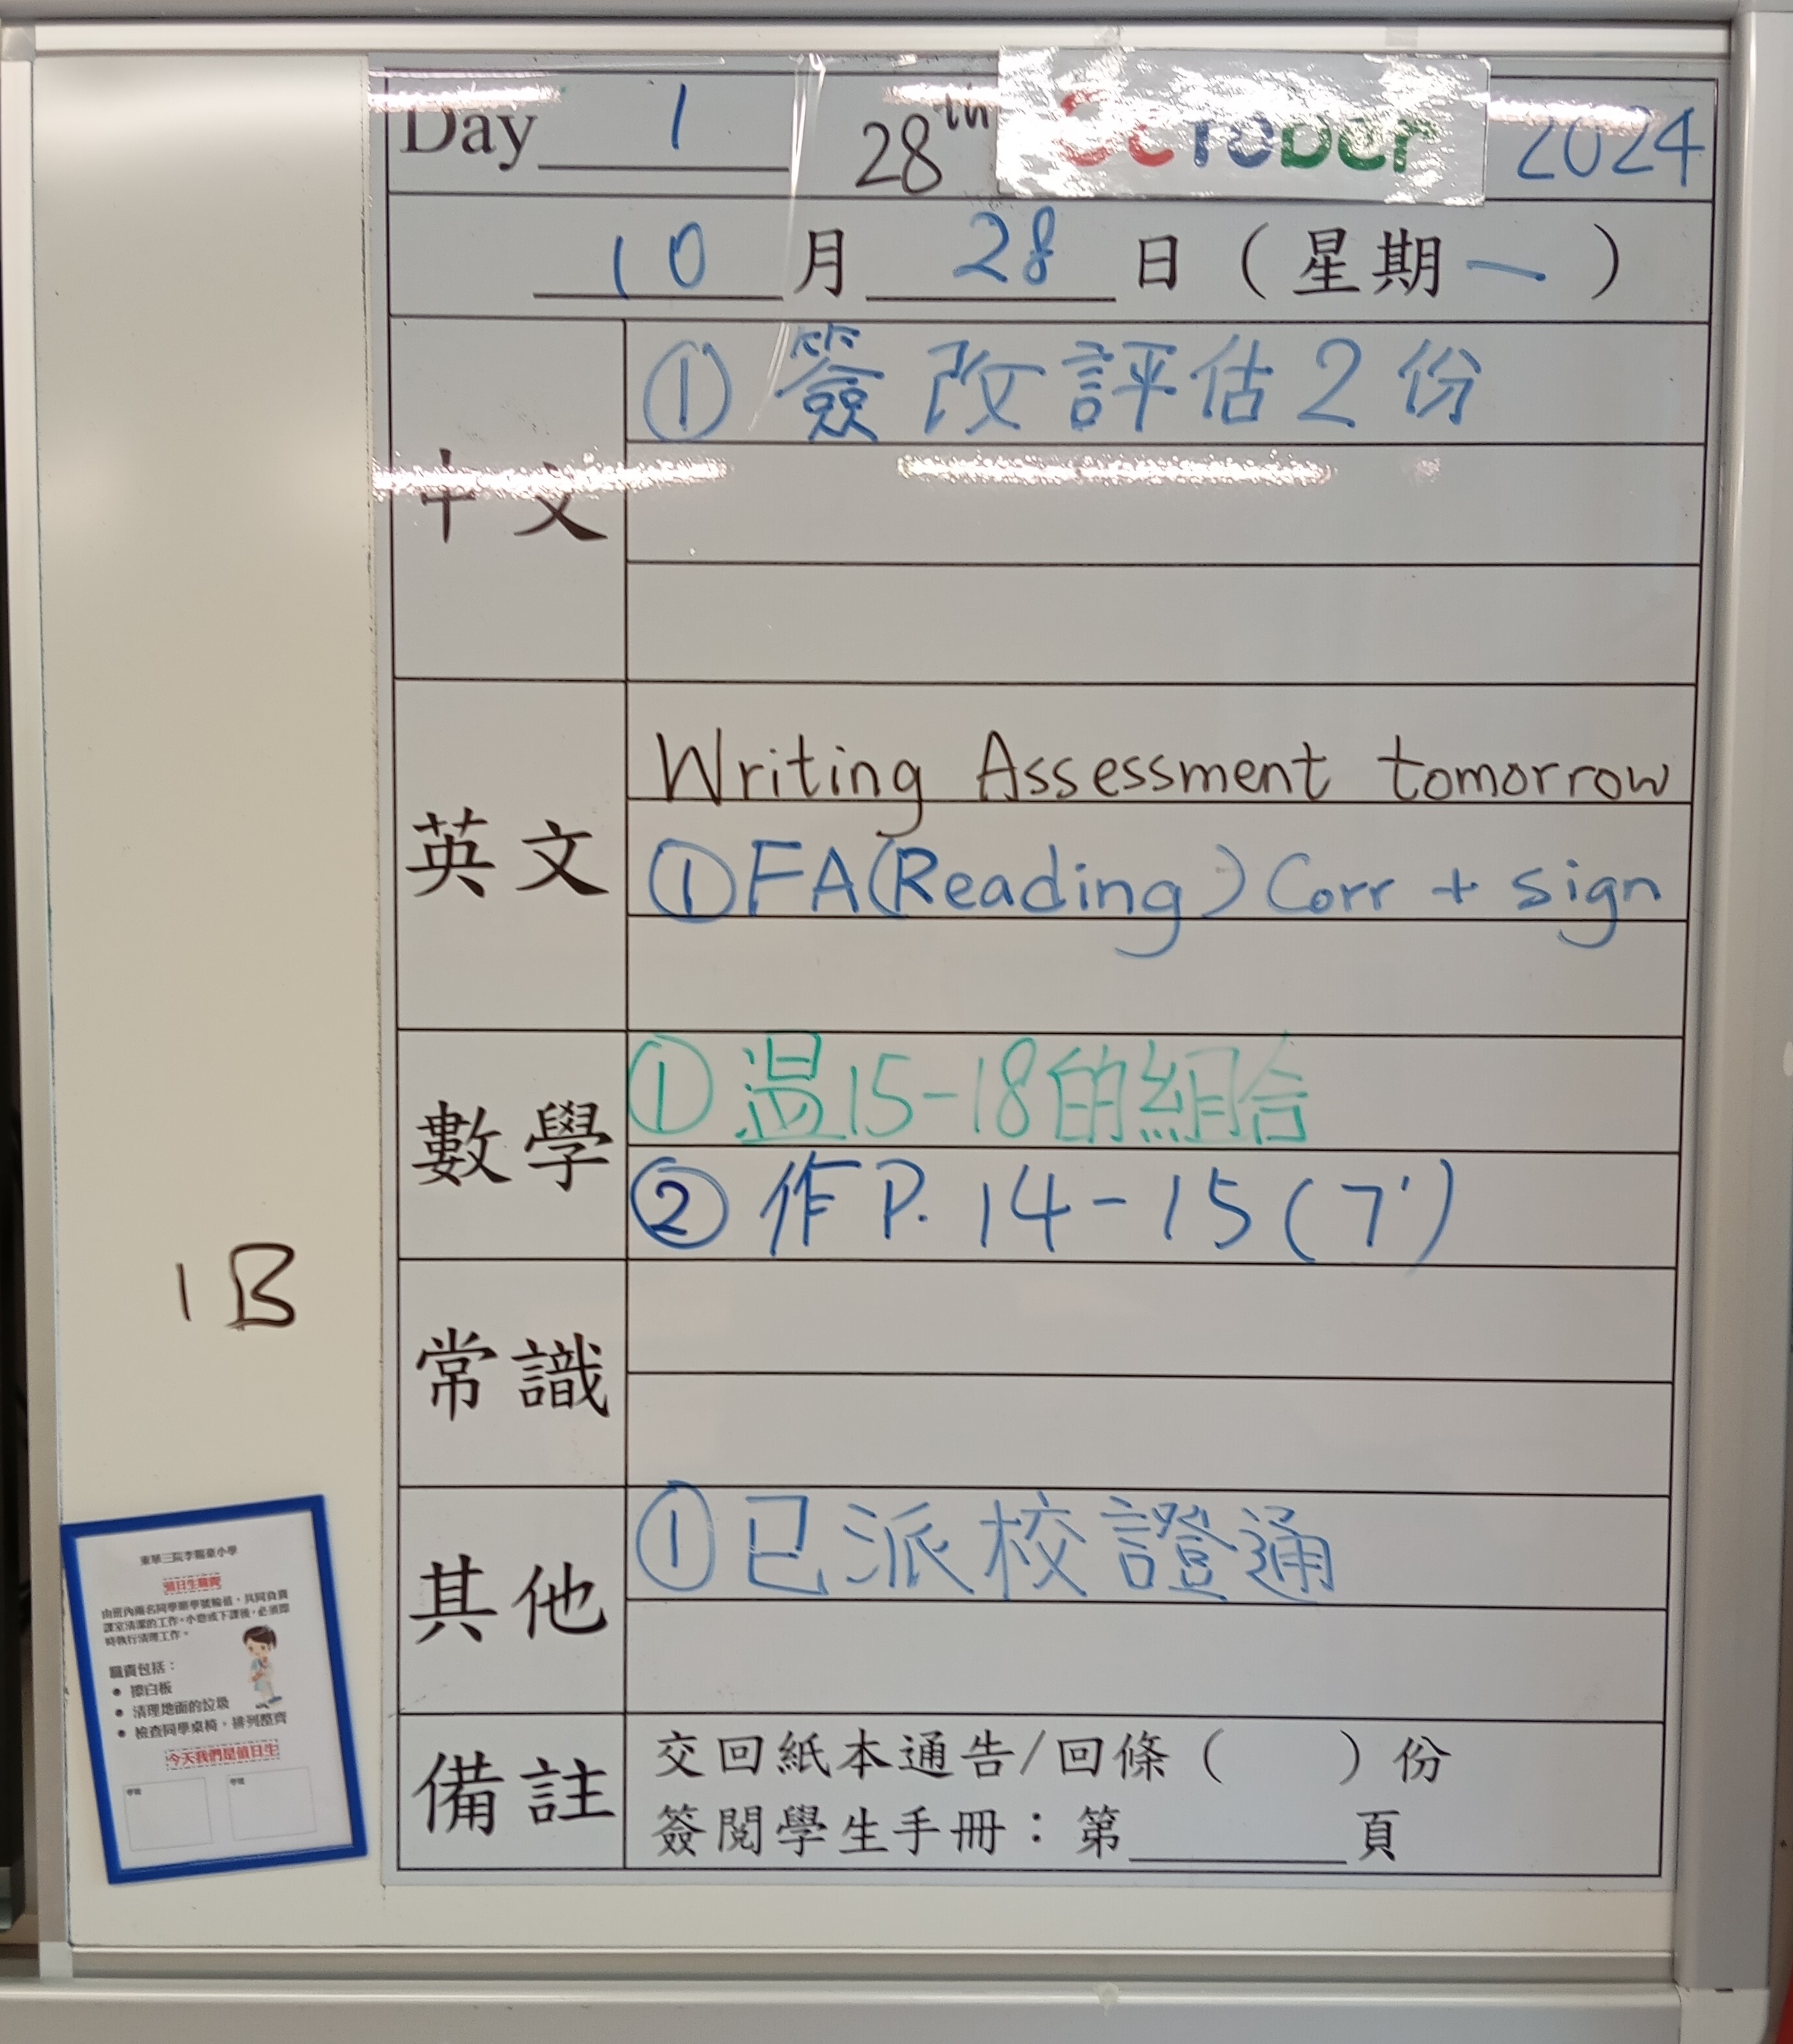 Day 1 28th October 2024
10 月 28 日 ( 星期一 )
中文
① 簽改評估2份
英文
Writing Assessment tomorrow
① FA(Reading) Corr + sign
數學
① 温15-18的組合
② 作P. 14-15(7')
常識
其他
① 已派校證通
備註
交回紙本通告/回條 ( ) 份
簽閱學生手冊：第____頁
1B
東華三院李賜豪小學
值日生職責
由班內兩名同學順學號輪值，共同負責
課室清潔的工作。小息或下課後，必須即
時執行清理工作。
職責包括：
● 擦白板
● 清理地面的垃圾
● 檢查同學桌椅，排列整齊
今天我們是值日生
學號 學號